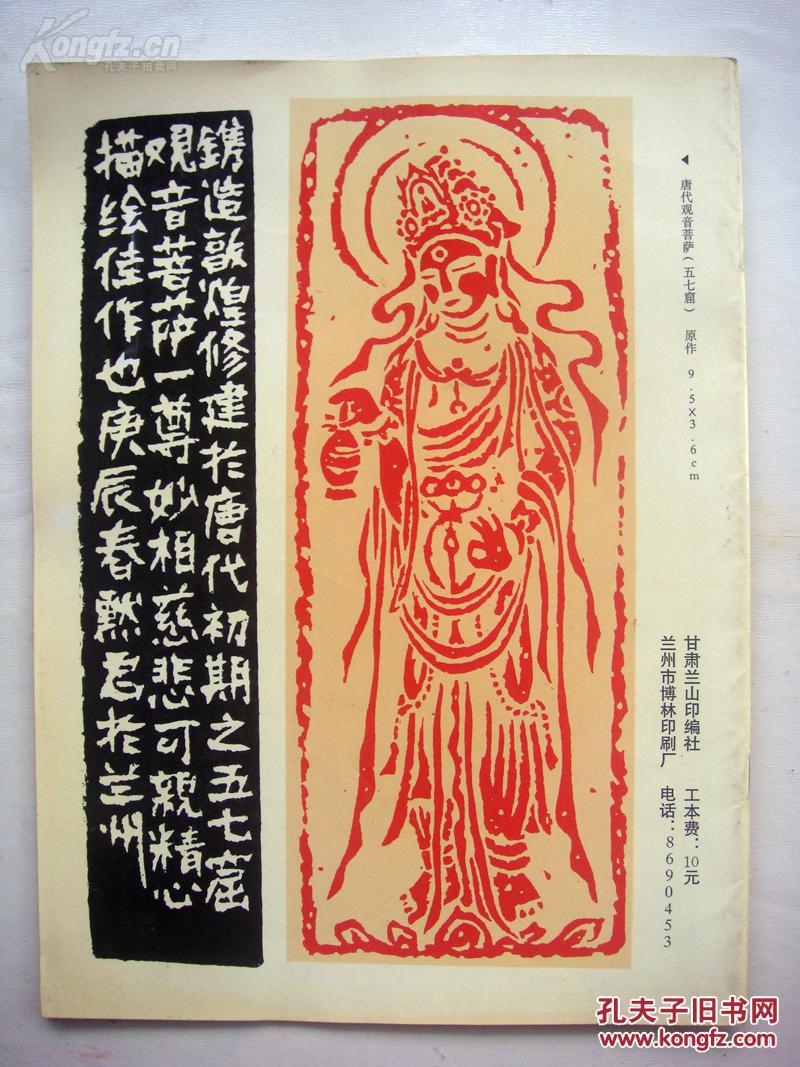 Kongfz.cn
孔夫子拍卖网
◀ 唐代观音菩萨(五七窟) 原作 9.5×3.6cm
甘肃兰山印编社 工本费:10元
兰州市博林印刷厂 电话:8690453
镌造敦煌修建於唐代初期之五七窟
观音菩萨一尊妙相慈悲可親精心
描绘佳作也庚辰春黙君於兰州
孔夫子旧书网
www.kongfz.com